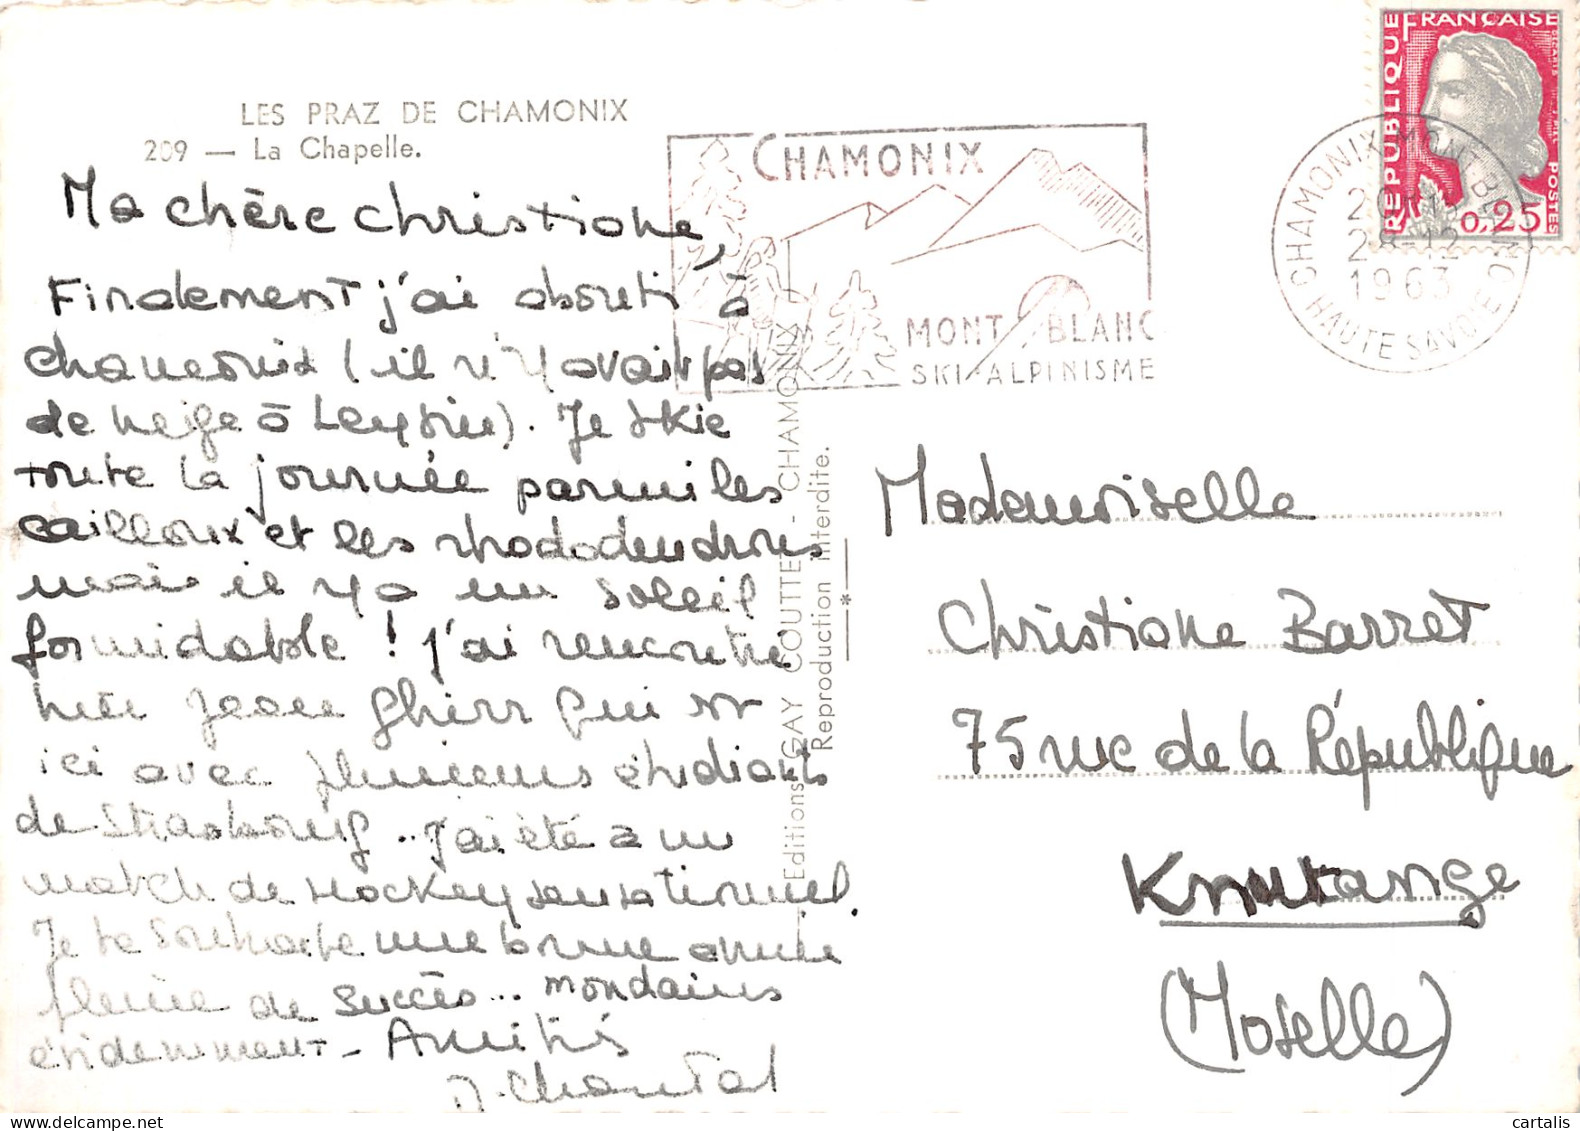 LES PRAZ DE CHAMONIX
209 — La Chapelle.
Ma chère Christiane,
Finalement j'ai abouti à
chamonix (il n'y avait pas
de neige à Leysin). Je skie
toute la journée parmi les
cailloux et les rhododendrons
mais il y a un soleil
formidable ! J'ai rencontré
hier Jean Ghirr qui est
ici avec plusieurs étudiants
de Strasbourg.. J'ai été à un
match de Hockey sensationnel.
Je te souhaite une bonne année
pleine de succès... mondains
évidemment - Amitiés
Chantal
Editions GAY COUTTET - CHAMONIX
Reproduction interdite.
CHAMONIX
MONT BLANC
SKI-ALPINISME
CHAMONIX MONT BLANC
28-12
1963
HAUTE SAVOIE
REPUBLIQUE FRANÇAISE
0,25
POSTES
DECARIS
Mademoiselle
Christiane Barret
75 rue de la République
Knutange
(Moselle)
cartalis
delcampe.net